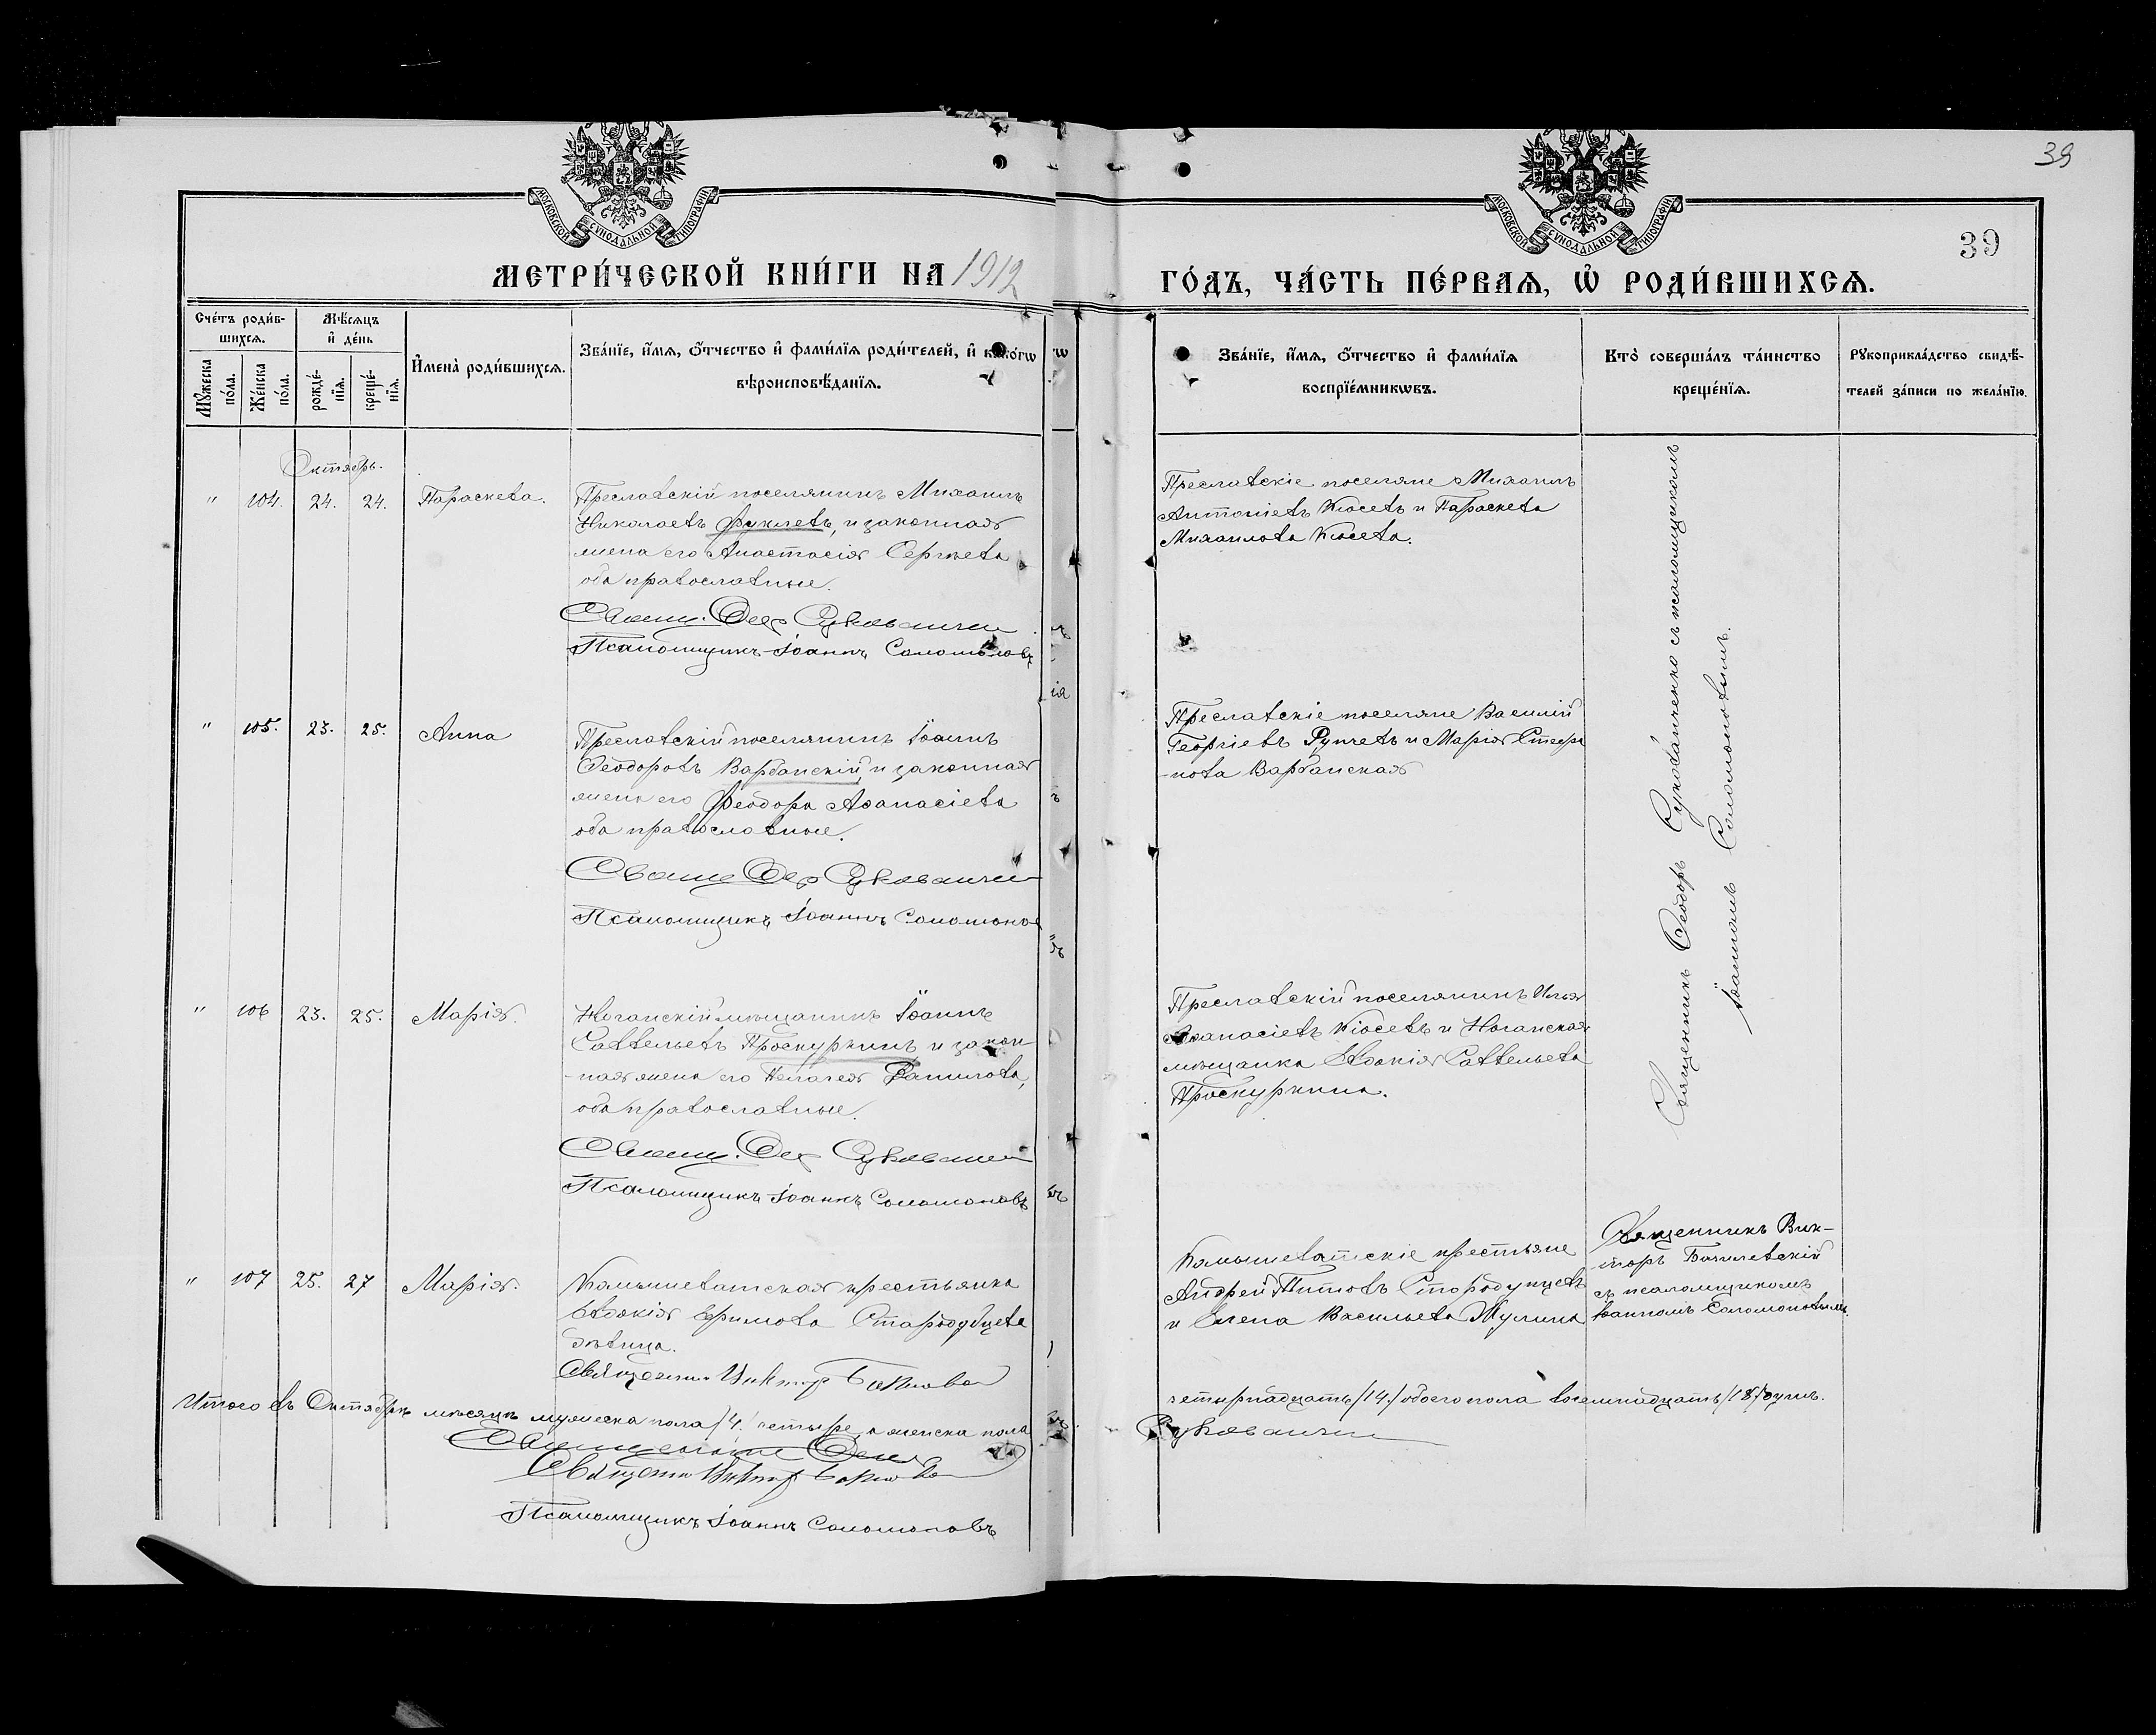 39
МОСКОВСКОЙ СУНОДАЛЬНОЙ ТИПОГРАФІИ
МОСКОВСКОЙ СУНОДАЛЬНОЙ ТИПОГРАФІИ
39
МЕТРИ́ЧЕСКОЙ КНИ́ГИ НА 1912
ГО́ДЪ, ЧА́СТЬ ПЕ́РВАѦ, Ѡ҆ РОДИ́ВШИХСѦ.
Сче́тъ роди́в-
шихсѧ.
Мꙋ́жеска по́ла.
Же́нска по́ла.
Мѣ́сѧцъ
и҆ де́нь
рожде́-
нїѧ.
креще́-
нїѧ.
И҆мена̀ роди́вшихсѧ.
Зва́нїе, и҆́мѧ, ѻ҆́тчество и҆ фами́лїѧ роди́телей, и҆ како́гѡ
вѣроисповѣ́данїѧ.
Зва́нїе, и҆́мѧ, ѻ҆́тчество и҆ фами́лїѧ
воспрїе́мникѡвъ.
Кто̀ соверша́лъ та́инство
креще́нїѧ.
Рꙋкоприкла́дство свидѣ́-
телей за́писи по жела́нїю.
Октябрь.
" 104. 24. 24. Параскева.
Преславскій поселянинъ Михаилъ
Николаевъ Фуклевъ, и законная
жена его Анастасія Сергѣева
оба православные.
Свящ. Ѳеод Сукованченко
Псаломщикъ Іоаннъ Соломоновъ
Преславскіе поселяне Михаилъ
Антоніевъ Кюсевъ и Параскева
Михаилова Кюсева.
Священникъ Ѳеодоръ Сукованченко съ псаломщикомъ
Іоанномъ Соломоновымъ.
" 105. 23. 25. Анна
Преславскій поселянинъ Іоаннъ
Ѳеодоровъ Варбанскій, и законная
жена его Ѳеодора Аѳанасіева
оба православные.
Свящ Ѳеод Сукованченко
Псаломщикъ Іоаннъ Соломонов
Преславскіе поселяне Василій
Георгіевъ Рупчевъ и Марія Стефа
-нова Варбанская
" 106 23. 25. Марія.
Ногайскій мѣщанинъ Іоаннъ
Савельевъ Проскуринъ и закон-
-ная жена его Пелагея Данилова,
оба православные.
Свящ. Ѳеод Сукованченко
Псаломщикъ Іоаннъ Соломоновъ
Преславскій поселянинъ Илья
Аѳанасіевъ Кіосевъ и Ногайская
мѣщанка Евдокія Савельева
Проскурина.
" 107 25. 27 Марія.
Камышеватская крестьянка
Евдокія Ефимова Стародубцева
дѣвица.
Священникъ Виктор
Камышеватскіе крестьяне
Андрей Титовъ Стародубцевъ
и Елена Васильева
Священникъ Вик-
торъ
съ псаломщикомъ
Іоанномъ Соломоновымъ.
Итого въ Октябрѣ мѣсяцѣ мужеска пола /4/ четыре, а женска пола
четырнадцать /14/ обоего пола восемнадцать /18/ душъ.
Священникъ Ѳеод
Сукованченко
Священник Виктор
Псаломщикъ Іоаннъ Соломоновъ